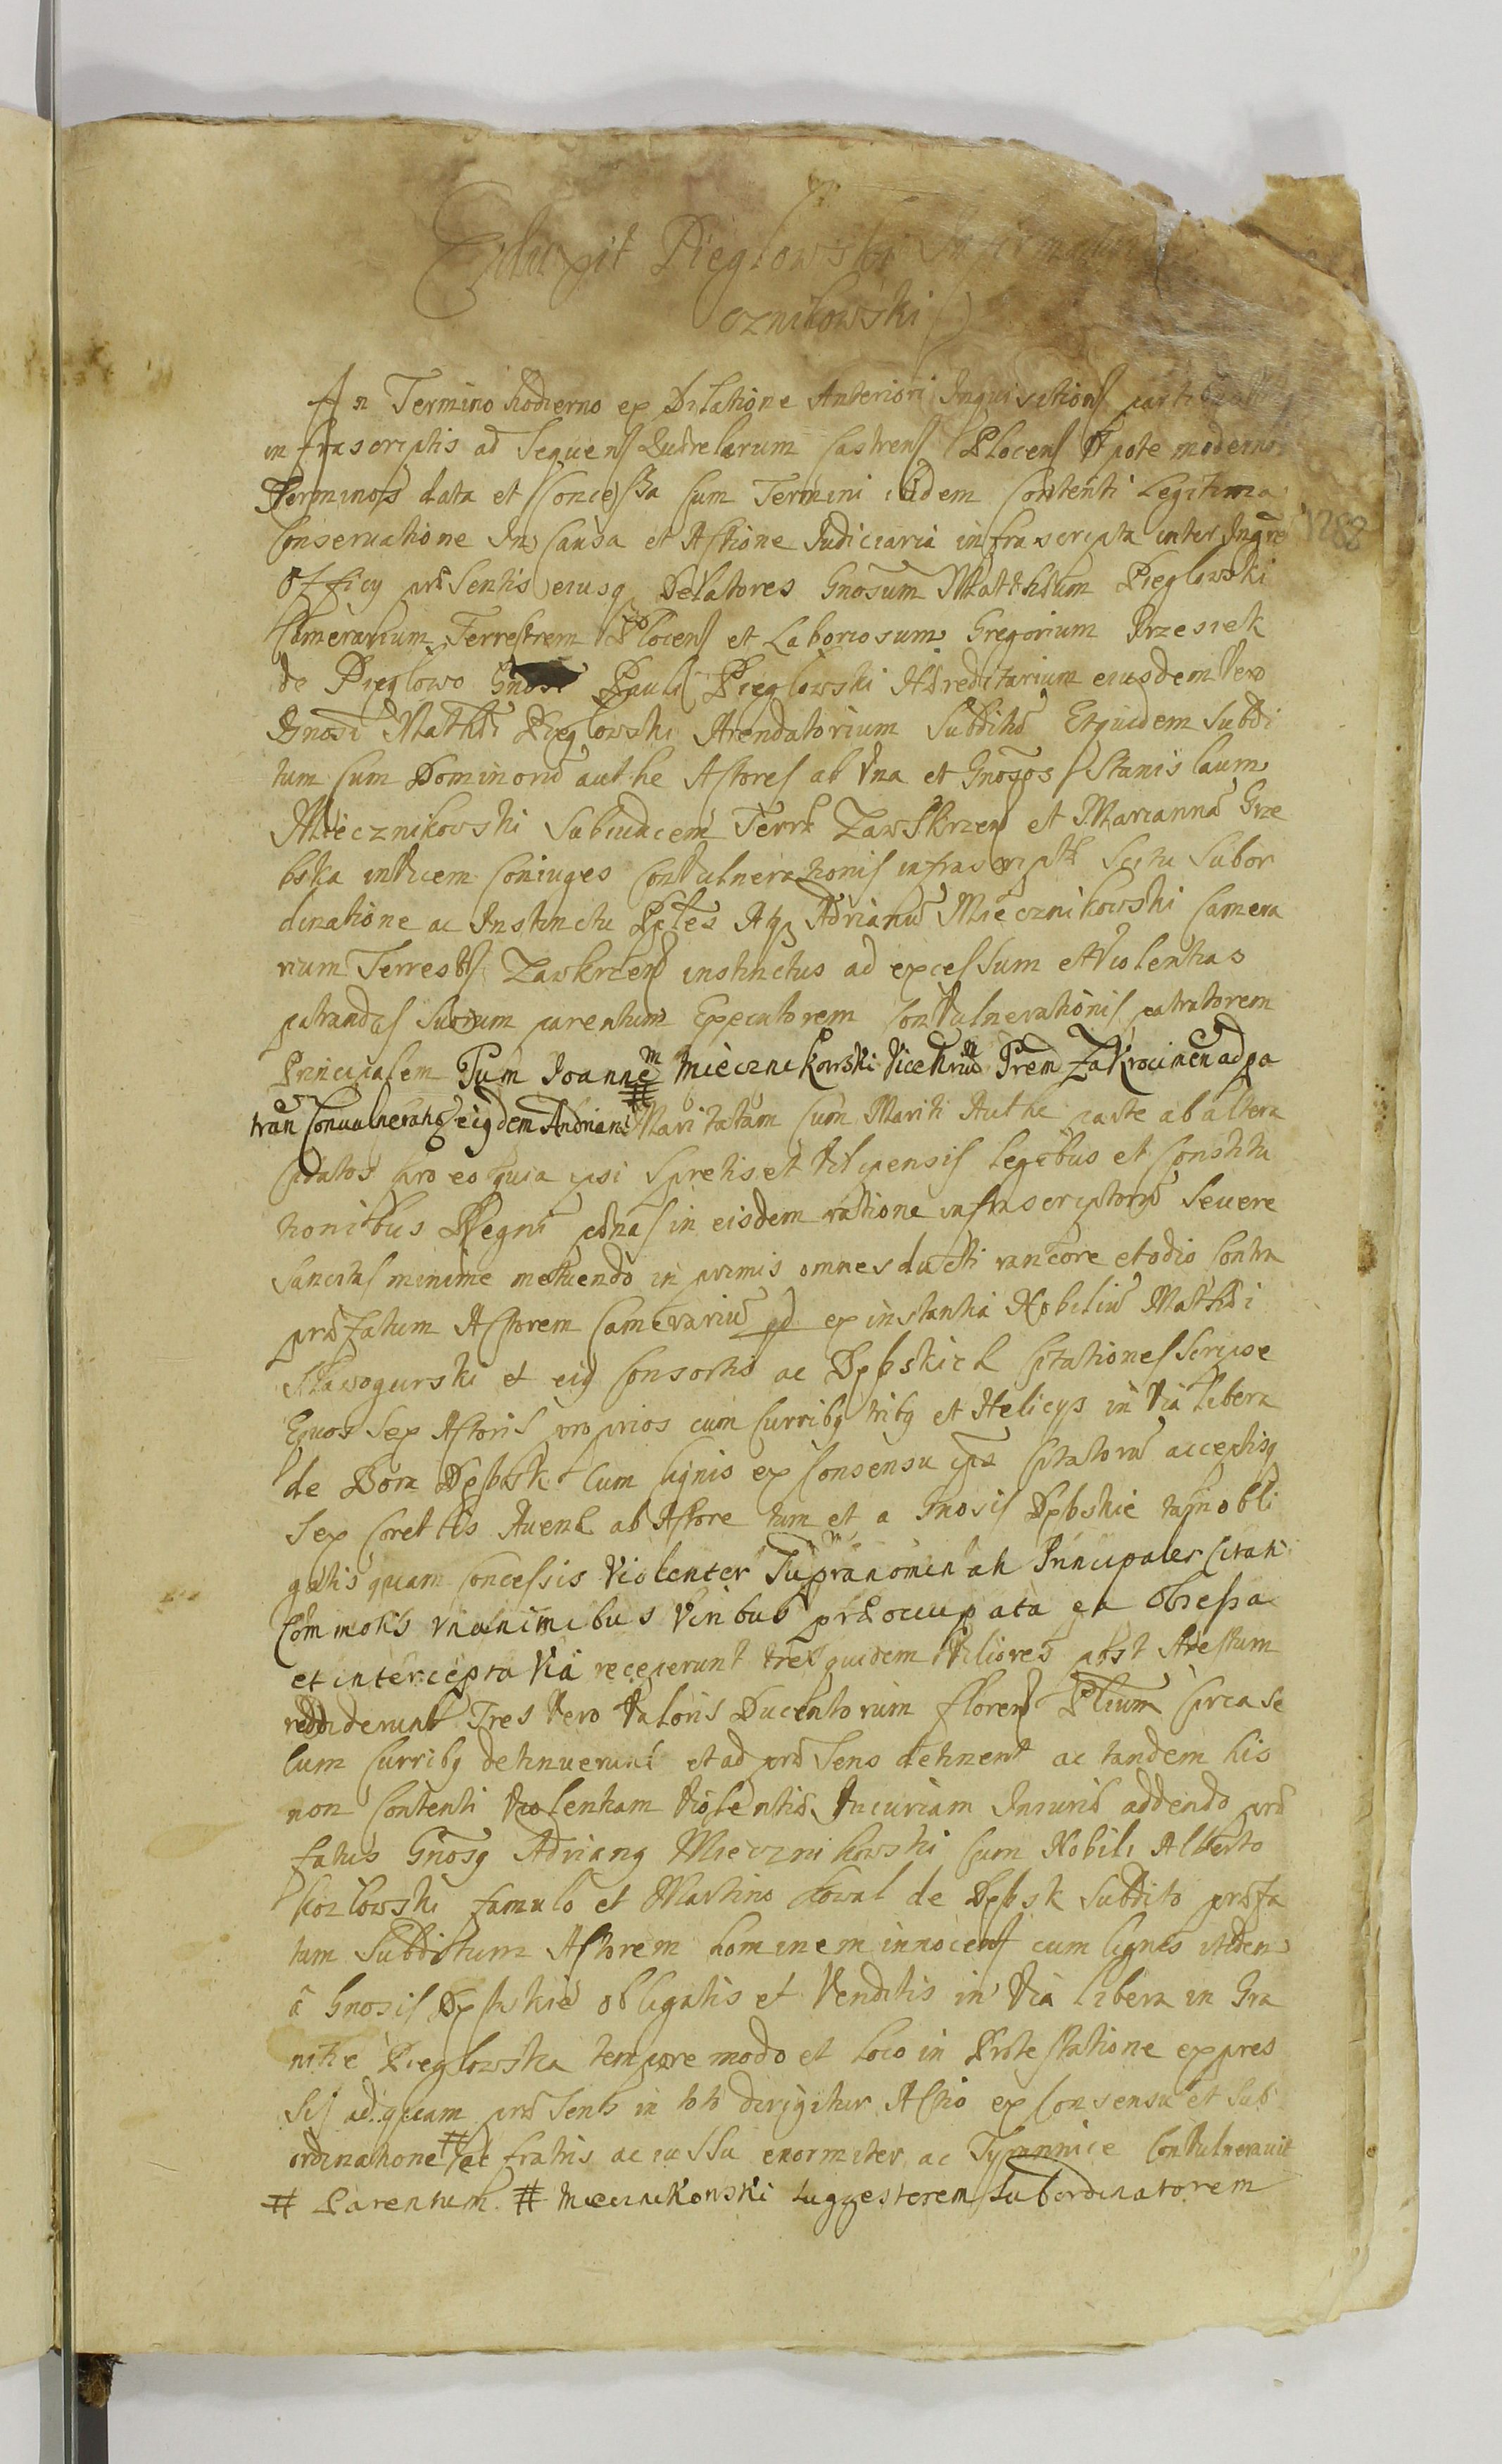 Pieglowski
cznikowski
In Termino hodierno ex Dilatione Anteriori Inquisitionis partibus
infrascriptis ad Sequens Querelarum Castrens Plocens Utpote modernos
Terminos data et Concessa Cum Termini itidem Contenti Legitima
Conservatione In Causa et Actione Judiciaria infrascripta inter
1282
Officy præsentis eiusq Delatores Gnosum Matthæum Pieglowski
Camerarium Terrestrem Plocens et Laboriosum Gregorium Brzesiek
de Pieglowo Gnosi Pauli Pieglowski Hæreditarium eiusdem Vero
Gnosi Mathæi Pieglowski Arendatorium Subditū Etquidem Subdi
tum Cum Dominorū authe Actores ab Una et Gnosos Stanislaum
Miecznikowski Subiudicem Terræ Zawskrzen et Mariannā Grze
bska invicem Coniuges Convulnerationis infrascriptæ Scitu Subor
dinatione ac Instinctu Pctes Atq Adrianū Miecznikowski Camera
rium Terrestrs Zawkrzens instinctus ad excessum et Violentias
patrandas Suorum parentum Executorem Convulnerationis patratorem
Principalem Tum Joannem Miecznikowski Vicetrium Prem Zakrocimen ad pa
tran Convulneratio eiqdem Andriani # Maritatam Cum Mariti Authe parte ab altera
Citatos pro eo quia ipsi Spretis et Vilipensis legibus et Constitu
tionibus Regni pœnas in eisdem ratione infrascriptorū Severe
Sancitas minime metuendo in primis omnes ducti rancore et odio Contra
præfatum Actorem Camerariū ex instantia Nobiliū Mathæi
et eiq Consortis ac Dębskich Citationes Scripse
Equos Sex Actoris proprios cum Curribq tribq et Helicys in Via Libera
de Bora Dębsk Cum lignis ex Consensu Citatorū acceptisq
Sex Corettis Avenæ ab Actore tum et a Gnosis Dębskie tam obli
gatis quam Concessis Violenter Supranominati Principales Citati
Commotis Unanimibus Viribus præoccupata ea Obsessa
et intercepta Via receperunt tres quidem Viliores post Arestum
reddiderunt Tres Vero Valoris Ducentorum floren Plium Circa Se
Cum Curribq detinuerunt et ad præsens detinent ac tandem his
non Contenti Violentiam Violentiæ Iniuriam Iniuriæ addendo præ
fatus Gnosq Adrianq Miecznikowski Cum Nobili Alberto
Kozlowski famulo et Martino Kowal de Dębsk Subdito præfa
tum Subditum Actorem hominem innocens cum lignis itidem
à Gnosis Dębskie obligatis et Venditis in Via Libera in Gra
nitie Pieglowska tempore modo et loco in Protestatione expres
sis ad quam præsens in toto dirigitur Actio ex Consensu et Sub
ordinatione # et fratris ac iussu enormiter ac Tyrannice Convulneravit
# Parentum. # Miecznikowski Suggestorem Subordinatorem